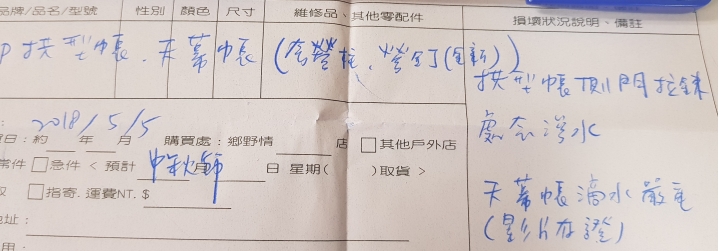 品牌/品名/型號 性別 顏色 尺寸 維修品、其他零配件 損壞狀況說明、備註
P 拱型帳、天幕帳(含營柱、營釘(全新))
拱型帳側門拉鍊
處會滲水
天幕帳滴水嚴重
(影片存證)
2018/5/5
日:約 年 月 購買處:鄉野情 店 □其他戶外店
件 □急件 < 預計 中秋節 月 日 星期( )取貨 >
□指寄.運費NT. $
址:
用: